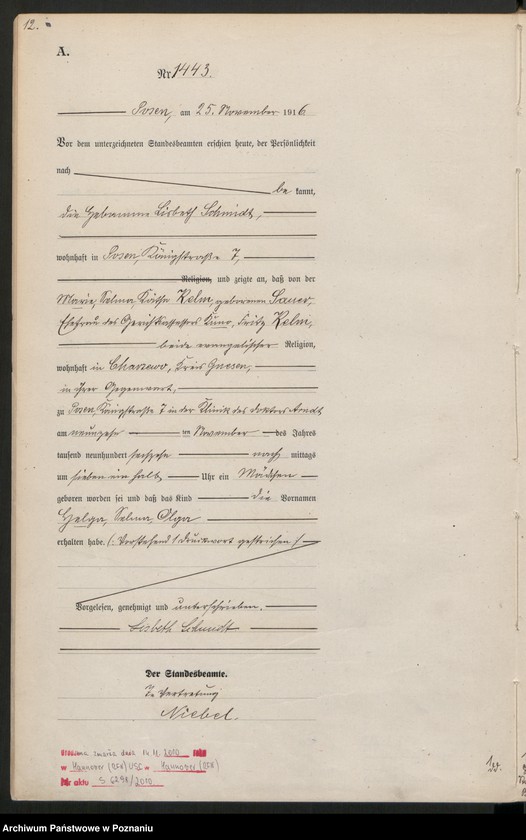 12.
A.
Nr. 1443.
Posen, am 25. November 1916
Vor dem unterzeichneten Standesbeamten erschien heute, der Persönlichkeit
nach
be kannt,
die Hebamme Lisbeth Schmidt,
wohnhaft in Posen, Königstraße 7,
Religion, und zeigte an, daß von der
Marie, Selma, Käthe Kelm, geborenen Sauer,
Ehefrau des Kuno, Fritz Kelm,
beide evangelischer Religion,
wohnhaft in Charzewo, Kreis Gnesen,
in ihrer Gegenwart,
zu Posen, Königstraße 7 in der Klinik des Doktors Arndt
am neunzehn ten November des Jahres
tausend neunhundert sechzehn nach mittags
um sieben ein halb Uhr ein Mädchen
geboren worden sei und daß das Kind die Vornamen
Helga, Selma, Olga
erhalten habe. (: Vorstehend 1 Druckwort gestrichen :)
Vorgelesen, genehmigt und unterschrieben.
Lisbeth Schmidt
Der Standesbeamte.
In Vertretung
Niebel.
zmarła dnia 14.11.2010
w Hannover (RFN) USC w Hannover (RFN)
Nr aktu S 6298/2010
Archiwum Państwowe w Poznaniu